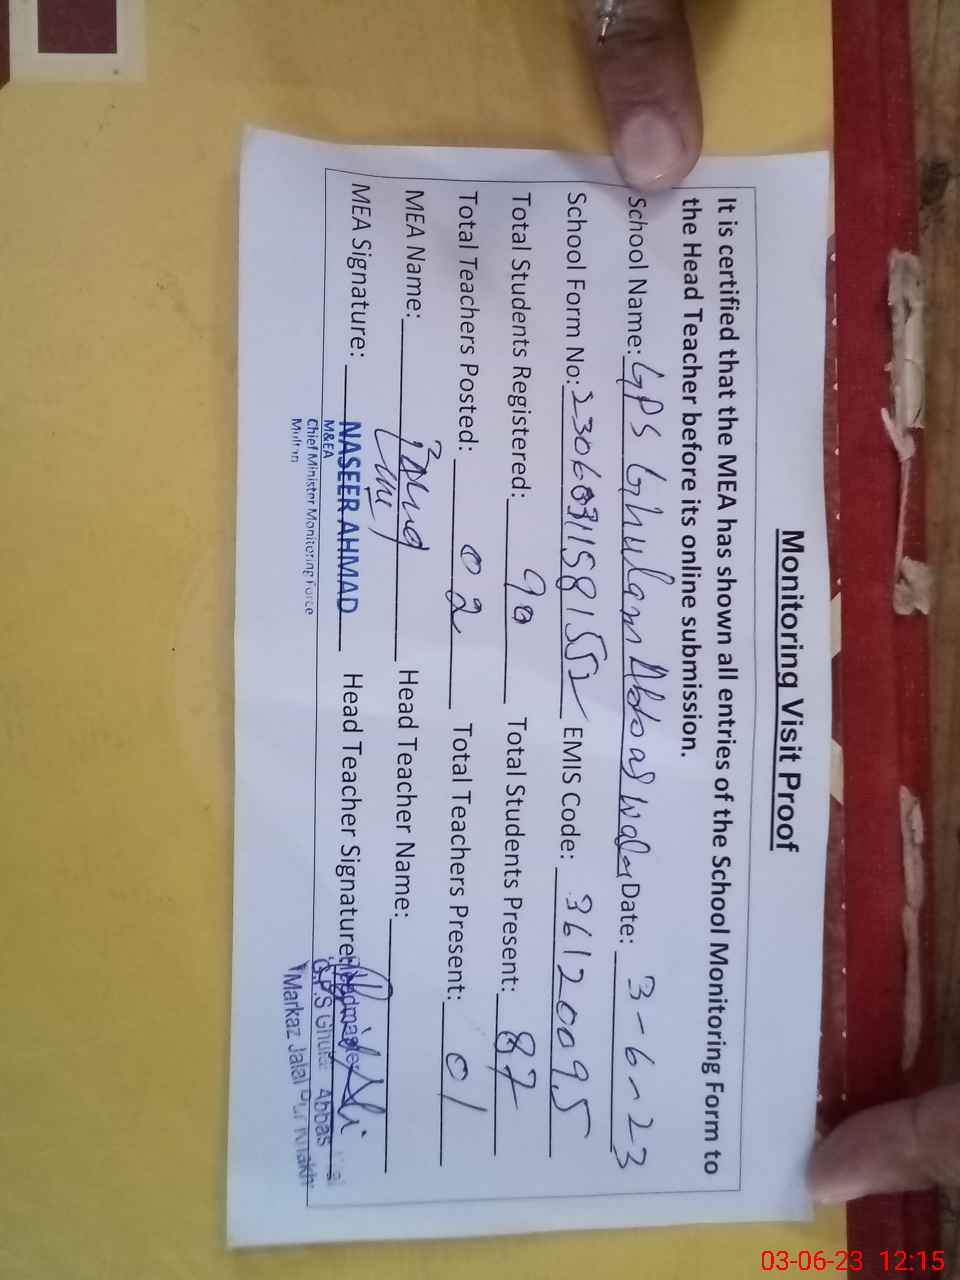 Monitoring Visit Proof
It is certified that the MEA has shown all entries of the School Monitoring Form to
the Head Teacher before its online submission.
School Name: GPS Ghulam Date: 3-6-23
School Form No: EMIS Code: 36120095
Total Students Registered: 90 Total Students Present: 87
Total Teachers Posted: 02 Total Teachers Present: 01
MEA Name: Head Teacher Name:
MEA Signature: NASEER AHMAD Head Teacher Signature:
M&EA
Chief Minister Monitoring Force
Multan
Headmaster
G.P.S Ghulam Abbas
Markaz Jalal Pur
03-06-23 12:15